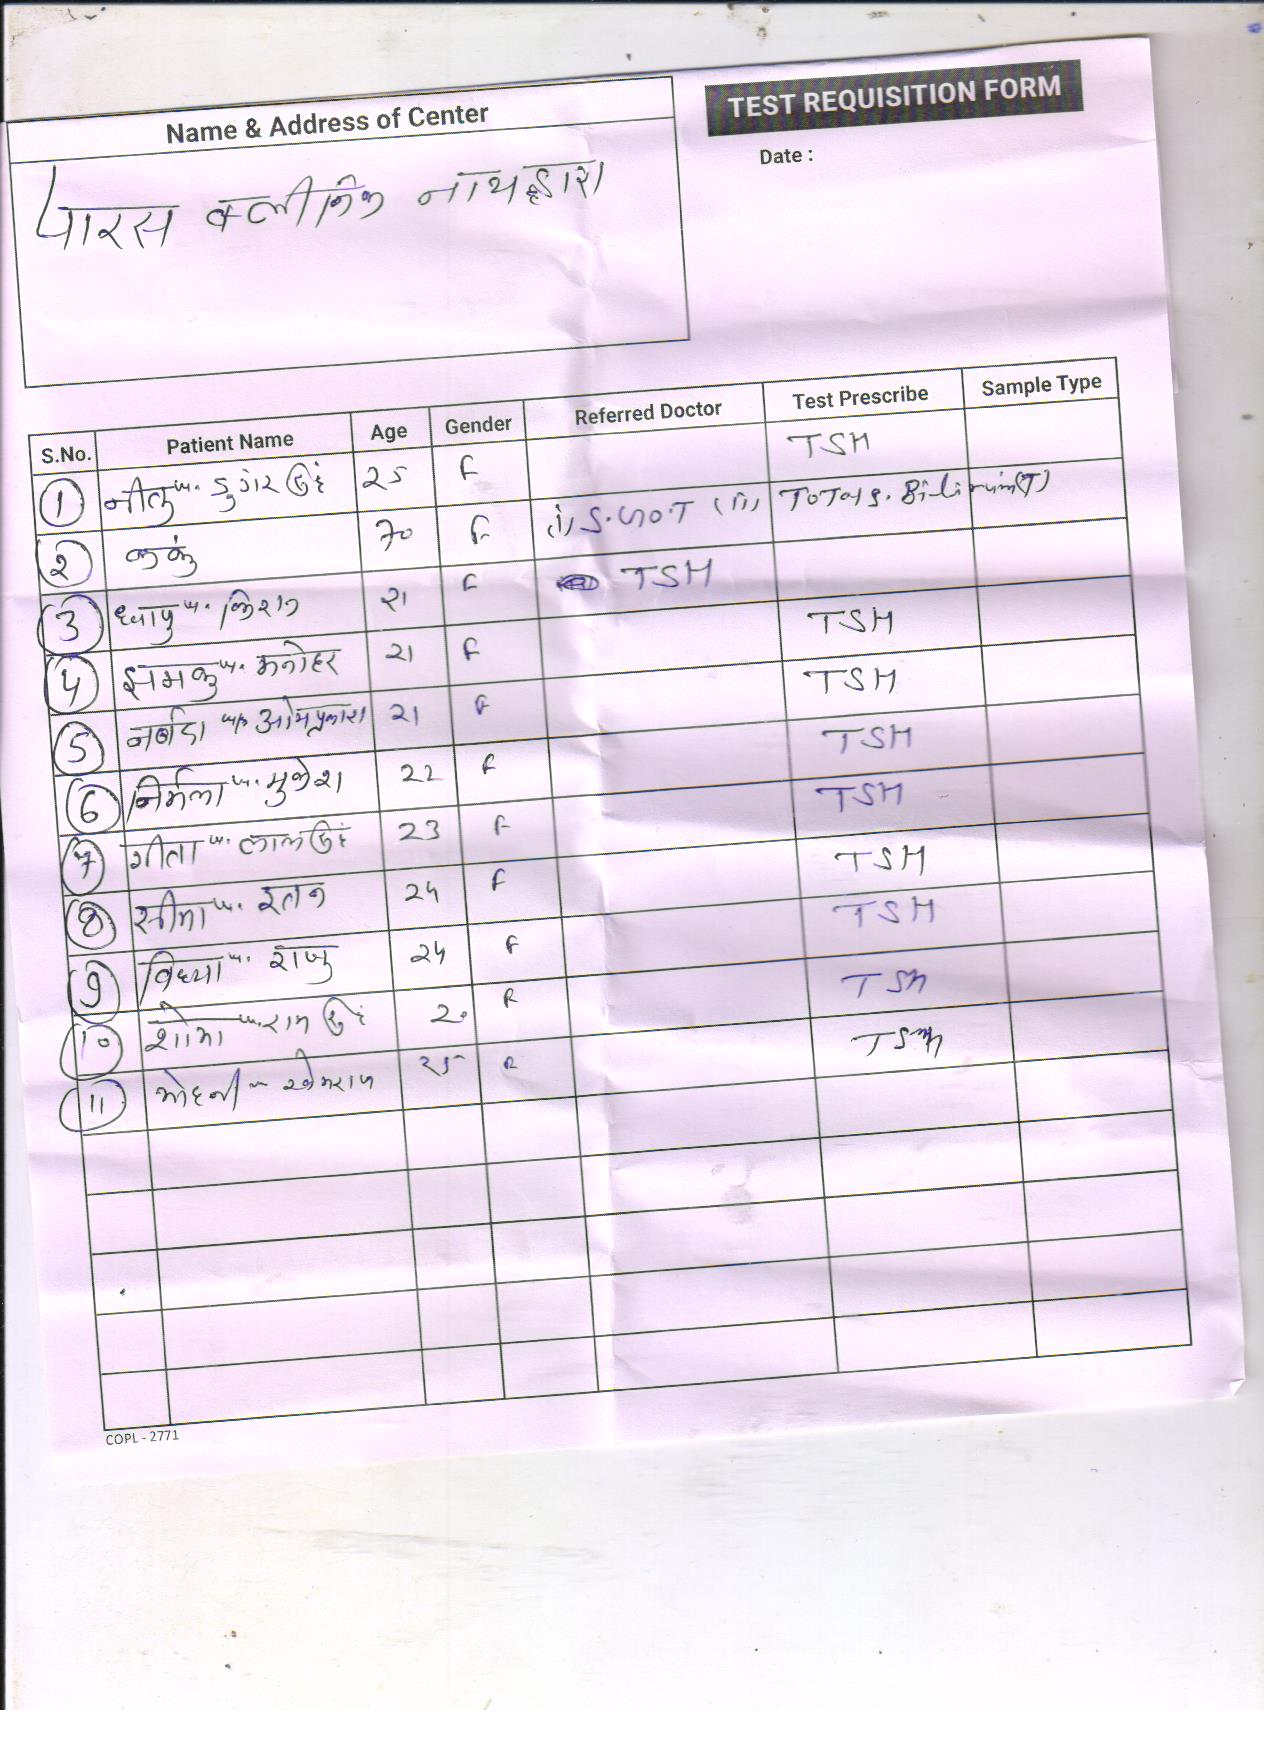 Name & Address of Center
TEST REQUISITION FORM
Date :
पारस क्लीनिक नाथद्वारा
S.No. Patient Name Age Gender Referred Doctor Test Prescribe Sample Type
1 नीलु w. डुगर सिंह 25 F TSH
2 कंकु 70 F (i) S.G.O.T (ii) Total S. Bilirubin(T)
3 ध्यापु w. किशन 21 F TSH
4 झमकु w. मनोहर 21 F TSH
5 नर्बदा w/o ओमप्रकाश 21 F TSH
6 निर्मला w. मुकेश 22 F TSH
7 गीता w. लाल सिंह 23 F TSH
8 सीमा w. रतन 24 F TSH
9 विध्या w. राजु 24 F TSH
10 शोभा w. राम सिंह 20 F TSH
11 मोहनी w खेमराज 25 F TSH
COPL - 2771